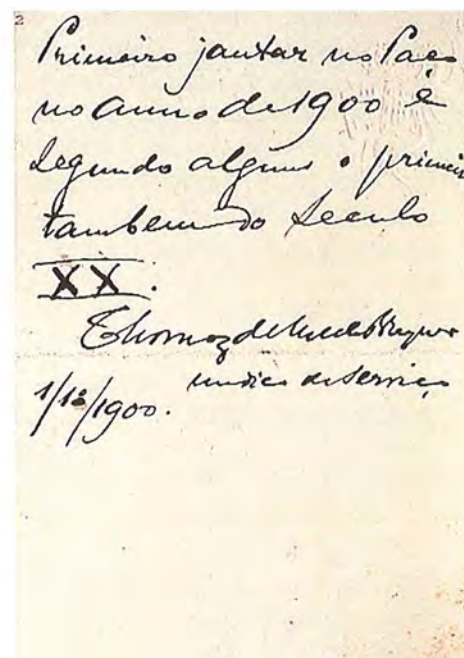 2
Primeiro jantar no Paço
no anno de 1900 e
segundo alguns o primeiro
tambem do Seculo
XX.
Thomaz de Mello Breyner
medico de serviço
1/1º/1900.